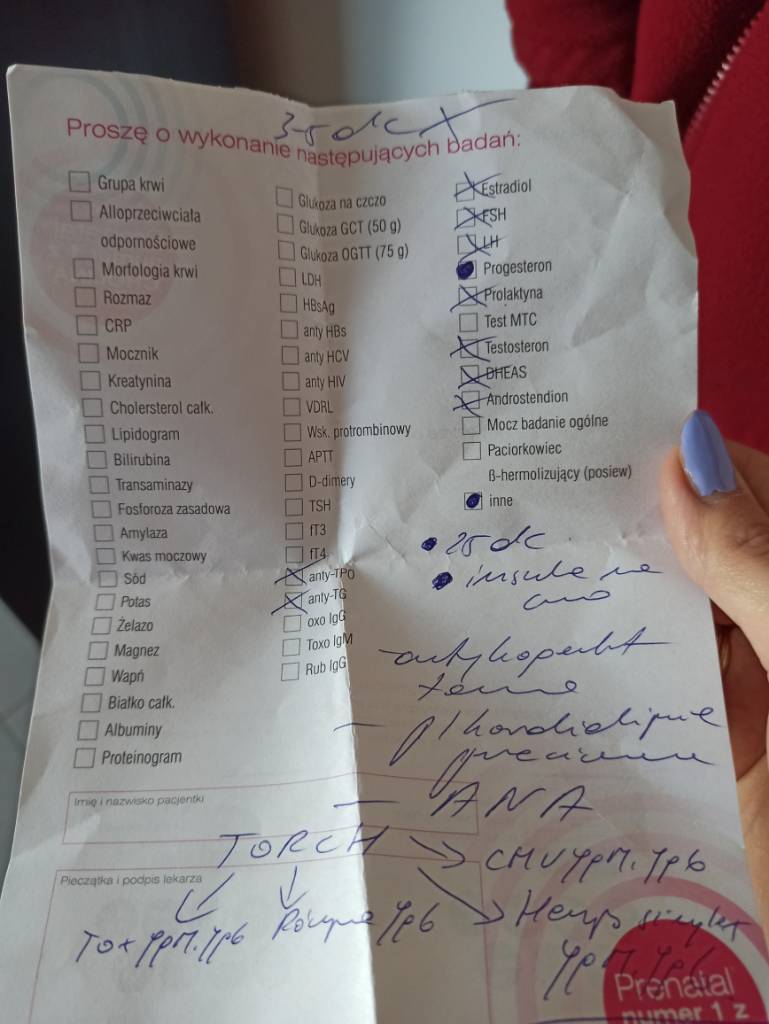 3-5 dc
Proszę o wykonanie następujących badań:
Grupa krwi
Alloprzeciwciała
odpornościowe
Morfologia krwi
Rozmaz
CRP
Mocznik
Kreatynina
Cholersterol całk.
Lipidogram
Bilirubina
Transaminazy
Fosforoza zasadowa
Amylaza
Kwas moczowy
Sód
Potas
Żelazo
Magnez
Wapń
Białko całk.
Albuminy
Proteinogram
Glukoza na czczo
Glukoza GCT (50 g)
Glukoza OGTT (75 g)
LDH
HBsAg
anty HBs
anty HCV
anty HIV
VDRL
Wsk. protrombinowy
APTT
D-dimery
TSH
fT3
fT4
anty-TPO
anty-TG
oxo IgG
Toxo IgM
Rub IgG
Estradiol
FSH
LH
Progesteron
Prolaktyna
Test MTC
Testosteron
DHEAS
Androstendion
Mocz badanie ogólne
Paciorkowiec
ß-hermolizujący (posiew)
inne
25 dc
- ANA
TORCH
CMV IgM, IgG
Tox IgM, IgG
IgG
IgM, IgG
Imię i nazwisko pacjentki
Pieczątka i podpis lekarza
Prenatal
numer 1 z